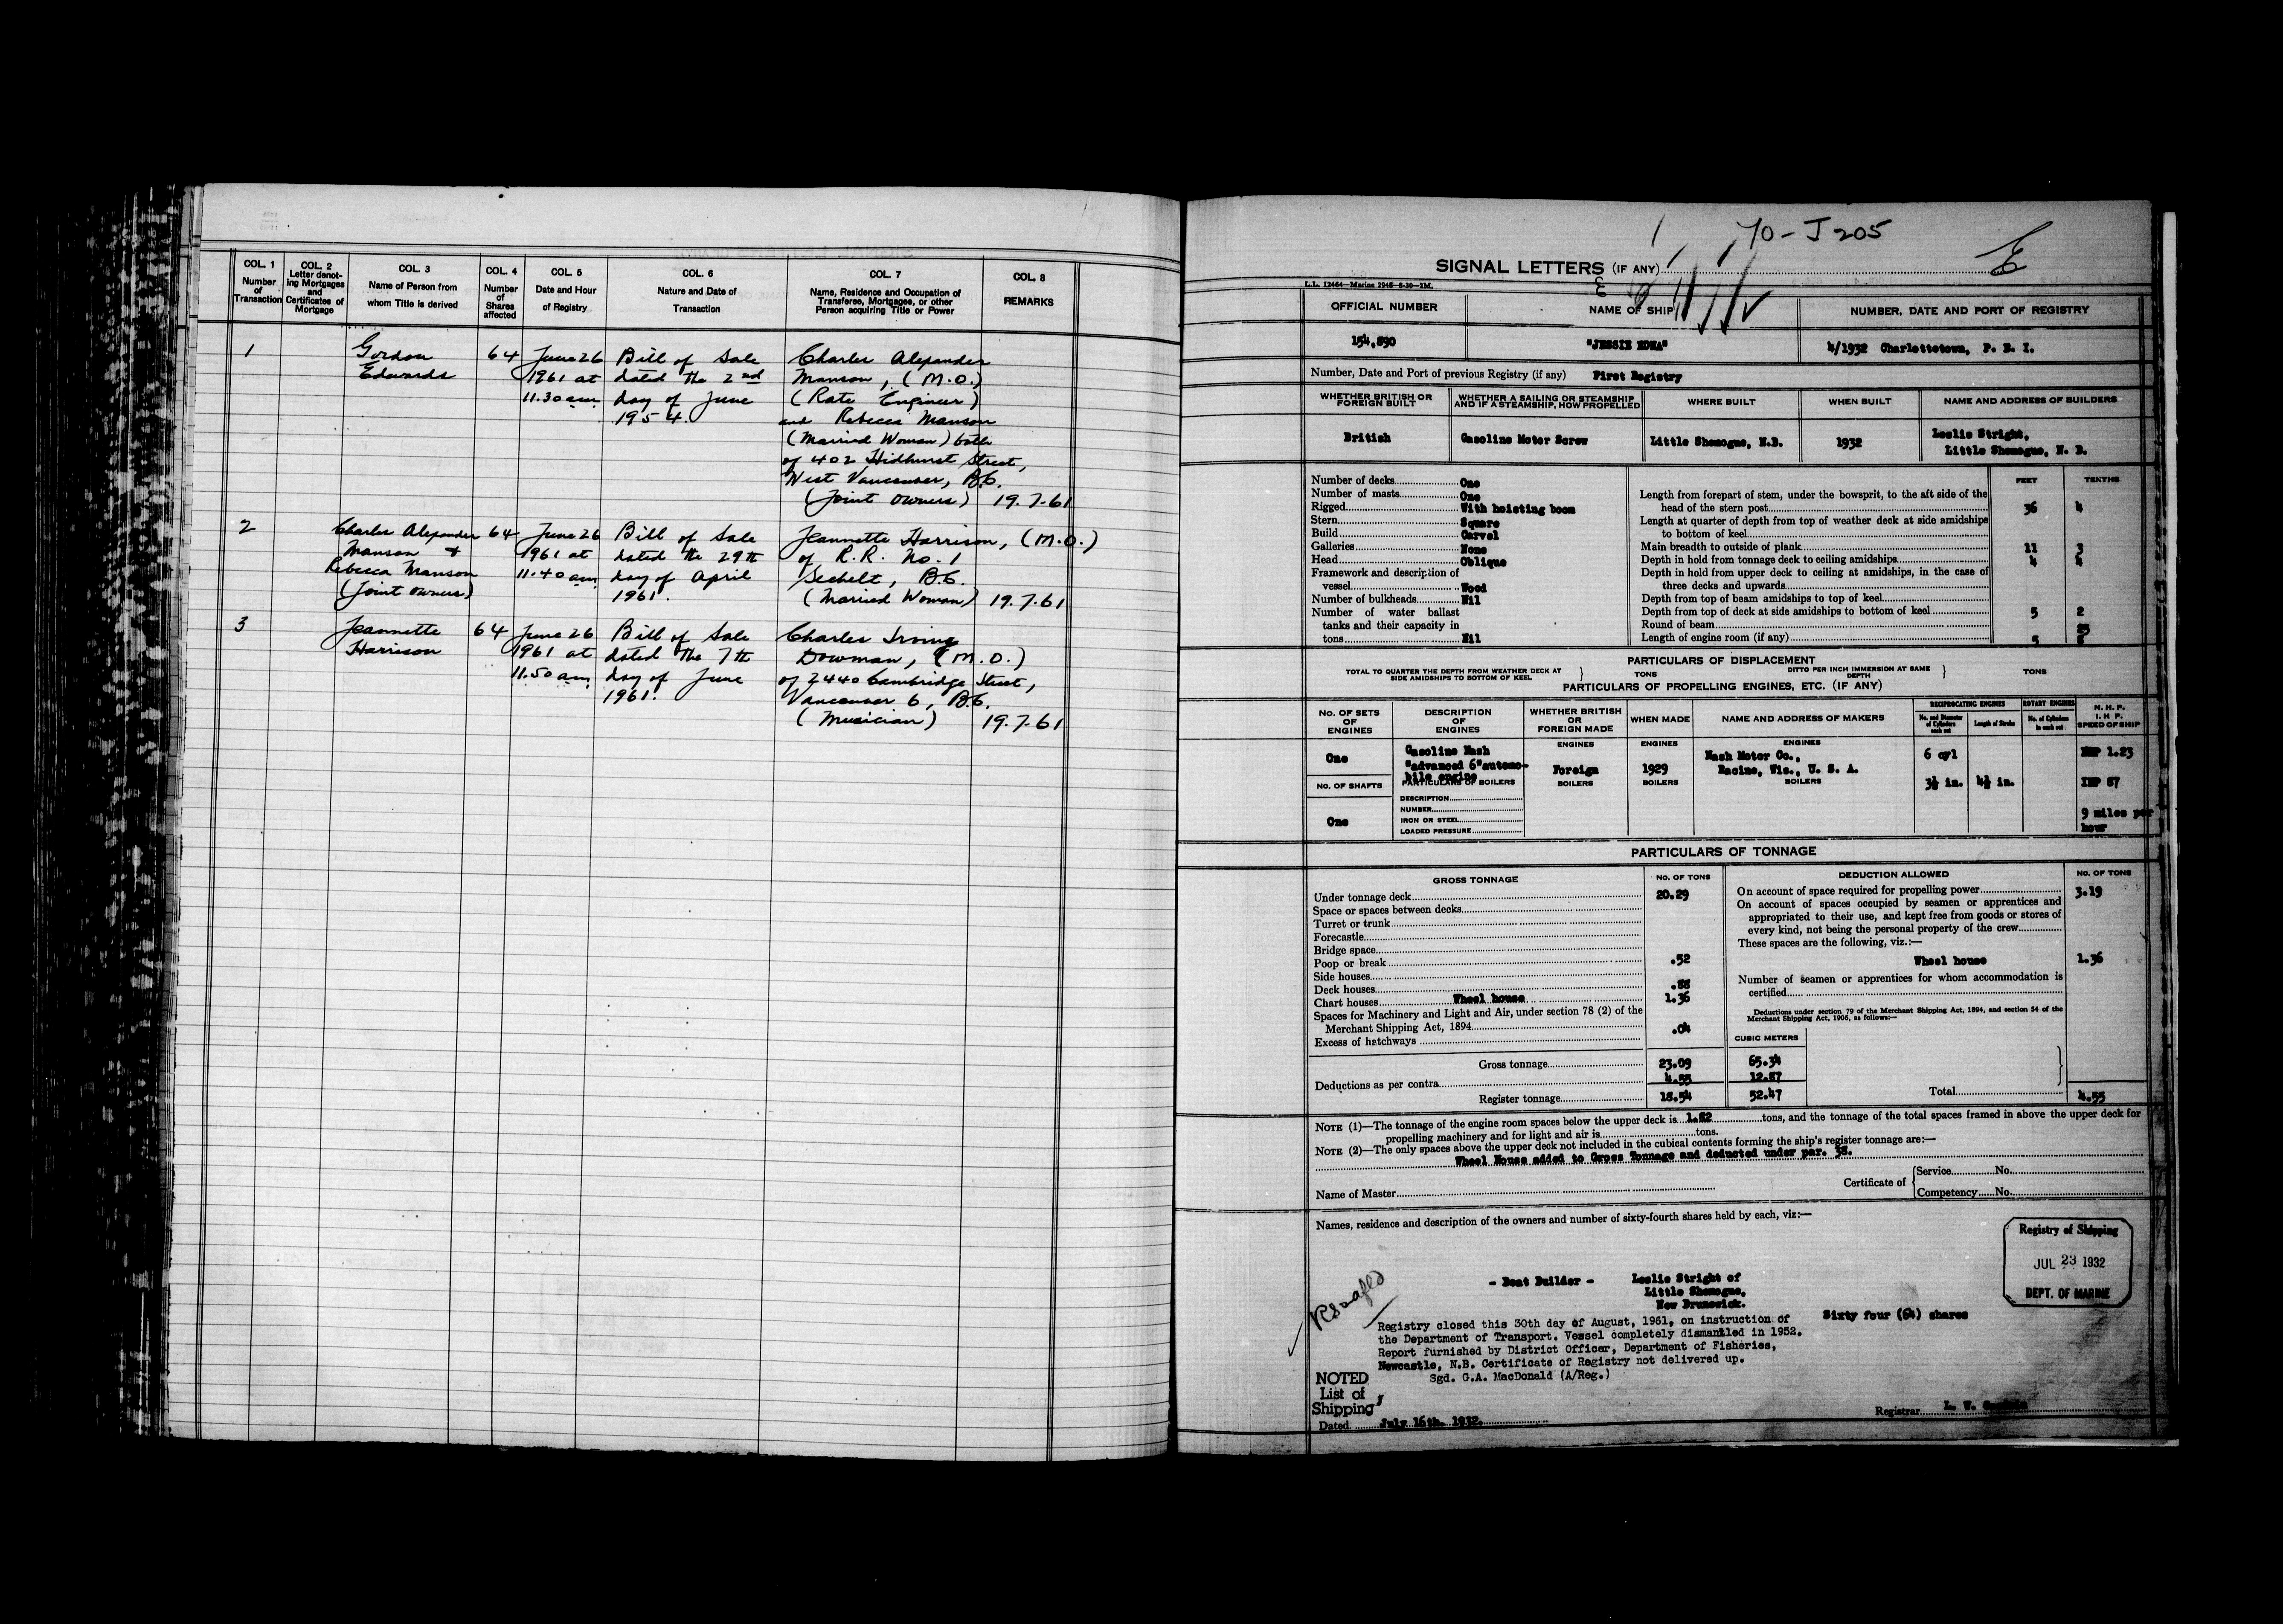 COL. 1 Number of Transaction
COL. 2 Letter denoting Mortgages and Certificates of Mortgage
COL. 3 Name of Person from whom Title is derived
COL. 4 Number of Shares affected
COL. 5 Date and Hour of Registry
COL. 6 Nature and Date of Transaction
COL. 7 Name, Residence and Occupation of Transferee, Mortgagee, or other Person acquiring Title or Power
COL. 8 REMARKS
1 Gordon 64 June 26 Bill of Sale Charles Alexander
Edwards 1961 at dated the 2nd Manson, (M.O.)
11.30 am day of June (Rate Engineer)
1954. and Rebecca Manson
(Married Woman) both
of 402 Hidhurst Street,
West Vancouver, B.C.
(Joint Owners) 19.7.61
2 Charles Alexander 64 June 26 Bill of Sale Jeannette Harrison, (M.O.)
Manson & 1961 at dated the 29th of R.R. No. 1
Rebecca Manson 11.40 am day of April Sechelt, B.C.
(Joint Owners) 1961. (Married Woman) 19.7.61
3 Jeannette 64 June 26 Bill of Sale Charles Irving
Harrison 1961 at dated the 7th Dowman, (M.O.)
11.50 am day of June of 2440 Cambridge Street,
1961. Vancouver 6, B.C.
(Musician) 19.7.61
70-J205
SIGNAL LETTERS (IF ANY)
L.L. 12464—Marine 2945—8-30—2M.
OFFICIAL NUMBER NAME OF SHIP NUMBER, DATE AND PORT OF REGISTRY
154,890 "JESSIE EDNA" 4/1932 Charlottetown, P. E. I.
Number, Date and Port of previous Registry (if any) First Registry
WHETHER BRITISH OR FOREIGN BUILT
WHETHER A SAILING OR STEAMSHIP AND IF A STEAMSHIP, HOW PROPELLED
WHERE BUILT
WHEN BUILT
NAME AND ADDRESS OF BUILDERS
British Gasoline Motor Screw Little Shemogue, N.B. 1932 Leslie Stright,
Little Shemogue, N. B.
FEET TENTHS
Number of decks One
Number of masts One
Rigged With hoisting boom
Stern Square
Build Carvel
Galleries None
Head Oblique
Framework and description of
vessel Wood
Number of bulkheads Nil
Number of water ballast
tanks and their capacity in
tons Nil
Length from forepart of stem, under the bowsprit, to the aft side of the
head of the stern post 36 4
Length at quarter of depth from top of weather deck at side amidships
to bottom of keel
Main breadth to outside of plank 11 3
Depth in hold from tonnage deck to ceiling amidships 4 4
Depth in hold from upper deck to ceiling at amidships, in the case of
three decks and upwards
Depth from top of beam amidships to top of keel
Depth from top of deck at side amidships to bottom of keel 5 2
Round of beam 25
Length of engine room (if any) 5 8
PARTICULARS OF DISPLACEMENT
TOTAL TO QUARTER THE DEPTH FROM WEATHER DECK AT SIDE AMIDSHIPS TO BOTTOM OF KEEL } TONS DITTO PER INCH IMMERSION AT SAME DEPTH } TONS
PARTICULARS OF PROPELLING ENGINES, ETC. (IF ANY)
NO. OF SETS OF ENGINES
DESCRIPTION OF ENGINES
WHETHER BRITISH OR FOREIGN MADE
WHEN MADE
NAME AND ADDRESS OF MAKERS
RECIPROCATING ENGINES
No. and Diameter of Cylinders each set
Length of Stroke
ROTARY ENGINES
No. of Cylinders in each set
N. H. P.
I. H. P.
SPEED OF SHIP
ENGINES ENGINES ENGINES
One Gasoline Nash Foreign 1929 Nash Motor Co., 6 cyl NHP 1.23
"advanced 6" automo- Racine, Wis., U. S. A.
bile engine
NO. OF SHAFTS PARTICULARS OF BOILERS BOILERS BOILERS BOILERS 3½ in. 4½ in. IHP 87
DESCRIPTION
NUMBER
One IRON OR STEEL 9 miles per
LOADED PRESSURE hour
PARTICULARS OF TONNAGE
GROSS TONNAGE NO. OF TONS DEDUCTION ALLOWED NO. OF TONS
Under tonnage deck 20.29
Space or spaces between decks
Turret or trunk
Forecastle
Bridge space
Poop or break .52
Side houses
Deck houses .88
Chart houses Wheel house 1.36
Spaces for Machinery and Light and Air, under section 78 (2) of the
Merchant Shipping Act, 1894 .04
Excess of hatchways
Gross tonnage 23.09
Deductions as per contra 4.55
Register tonnage 18.54
On account of space required for propelling power 3.19
On account of spaces occupied by seamen or apprentices and
appropriated to their use, and kept free from goods or stores of
every kind, not being the personal property of the crew
These spaces are the following, viz.:—
Wheel house 1.36
Number of seamen or apprentices for whom accommodation is
certified
Deductions under section 79 of the Merchant Shipping Act, 1894, and section 54 of the
Merchant Shipping Act, 1906, as follows:—
CUBIC METERS
65.34
12.87
52.47
Total 4.55
NOTE (1)—The tonnage of the engine room spaces below the upper deck is 1.82 tons, and the tonnage of the total spaces framed in above the upper deck for
propelling machinery and for light and air is tons.
NOTE (2)—The only spaces above the upper deck not included in the cubical contents forming the ship's register tonnage are:—
Wheel House added to Gross Tonnage and deducted under par. 38.
Name of Master Certificate of { Service No.
Competency No.
Names, residence and description of the owners and number of sixty-fourth shares held by each, viz:—
Registry of Shipping
JUL 23 1932
DEPT. OF MARINE
- Boat Builder - Leslie Stright of
Little Shemogue,
New Brunswick.
Sixty four (64) shares
Registry closed this 30th day of August, 1961, on instruction of
the Department of Transport. Vessel completely dismantled in 1952.
Report furnished by District Officer, Department of Fisheries,
Newcastle, N.B. Certificate of Registry not delivered up.
Sgd. G.A. MacDonald (A/Reg.)
NOTED
List of
Shipping
Dated July 16th. 1932.
Registrar L. W.